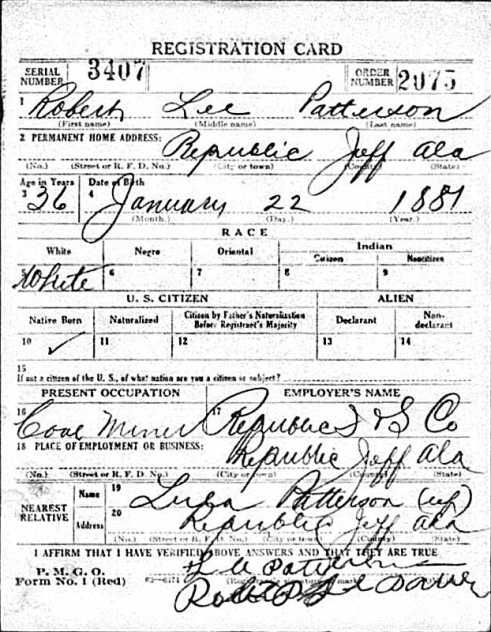 REGISTRATION CARD
SERIAL NUMBER 3407 ORDER NUMBER 2075
1 Robert Lee Patterson
(First name) (Middle name) (Last name)
2 PERMANENT HOME ADDRESS: Republic Jeff Ala
(No.) (Street or R. F. D. No.) (City or town) (County) (State)
Age in Years Date of Birth
3 36 4 January 22 1881
(Month.) (Day.) (Year.)
RACE
White Negro Oriental Indian
Citizen Noncitizen
5 White 6 7 8 9
U. S. CITIZEN ALIEN
Native Born Naturalized Citizen by Father's Naturalization Before Registrant's Majority Declarant Non-declarant
10 ✓ 11 12 13 14
15
If not a citizen of the U. S., of what nation are you a citizen or subject?
PRESENT OCCUPATION EMPLOYER'S NAME
16 Coal Miner 17 Republic I & S Co
18 PLACE OF EMPLOYMENT OR BUSINESS: Republic Jeff Ala
(No.) (Street or R. F. D. No.) (City or town) (County) (State)
NEAREST RELATIVE Name 19 Patterson (wf)
Address 20 Republic Jeff Ala
(No.) (Street or R. F. D. No.) (City or town) (County) (State)
I AFFIRM THAT I HAVE VERIFIED ABOVE ANSWERS AND THAT THEY ARE TRUE
P. M. G. O.
Form No. 1 (Red)